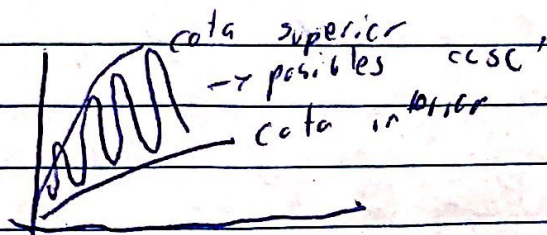 cota superior
→ posibles casos
cota inferior